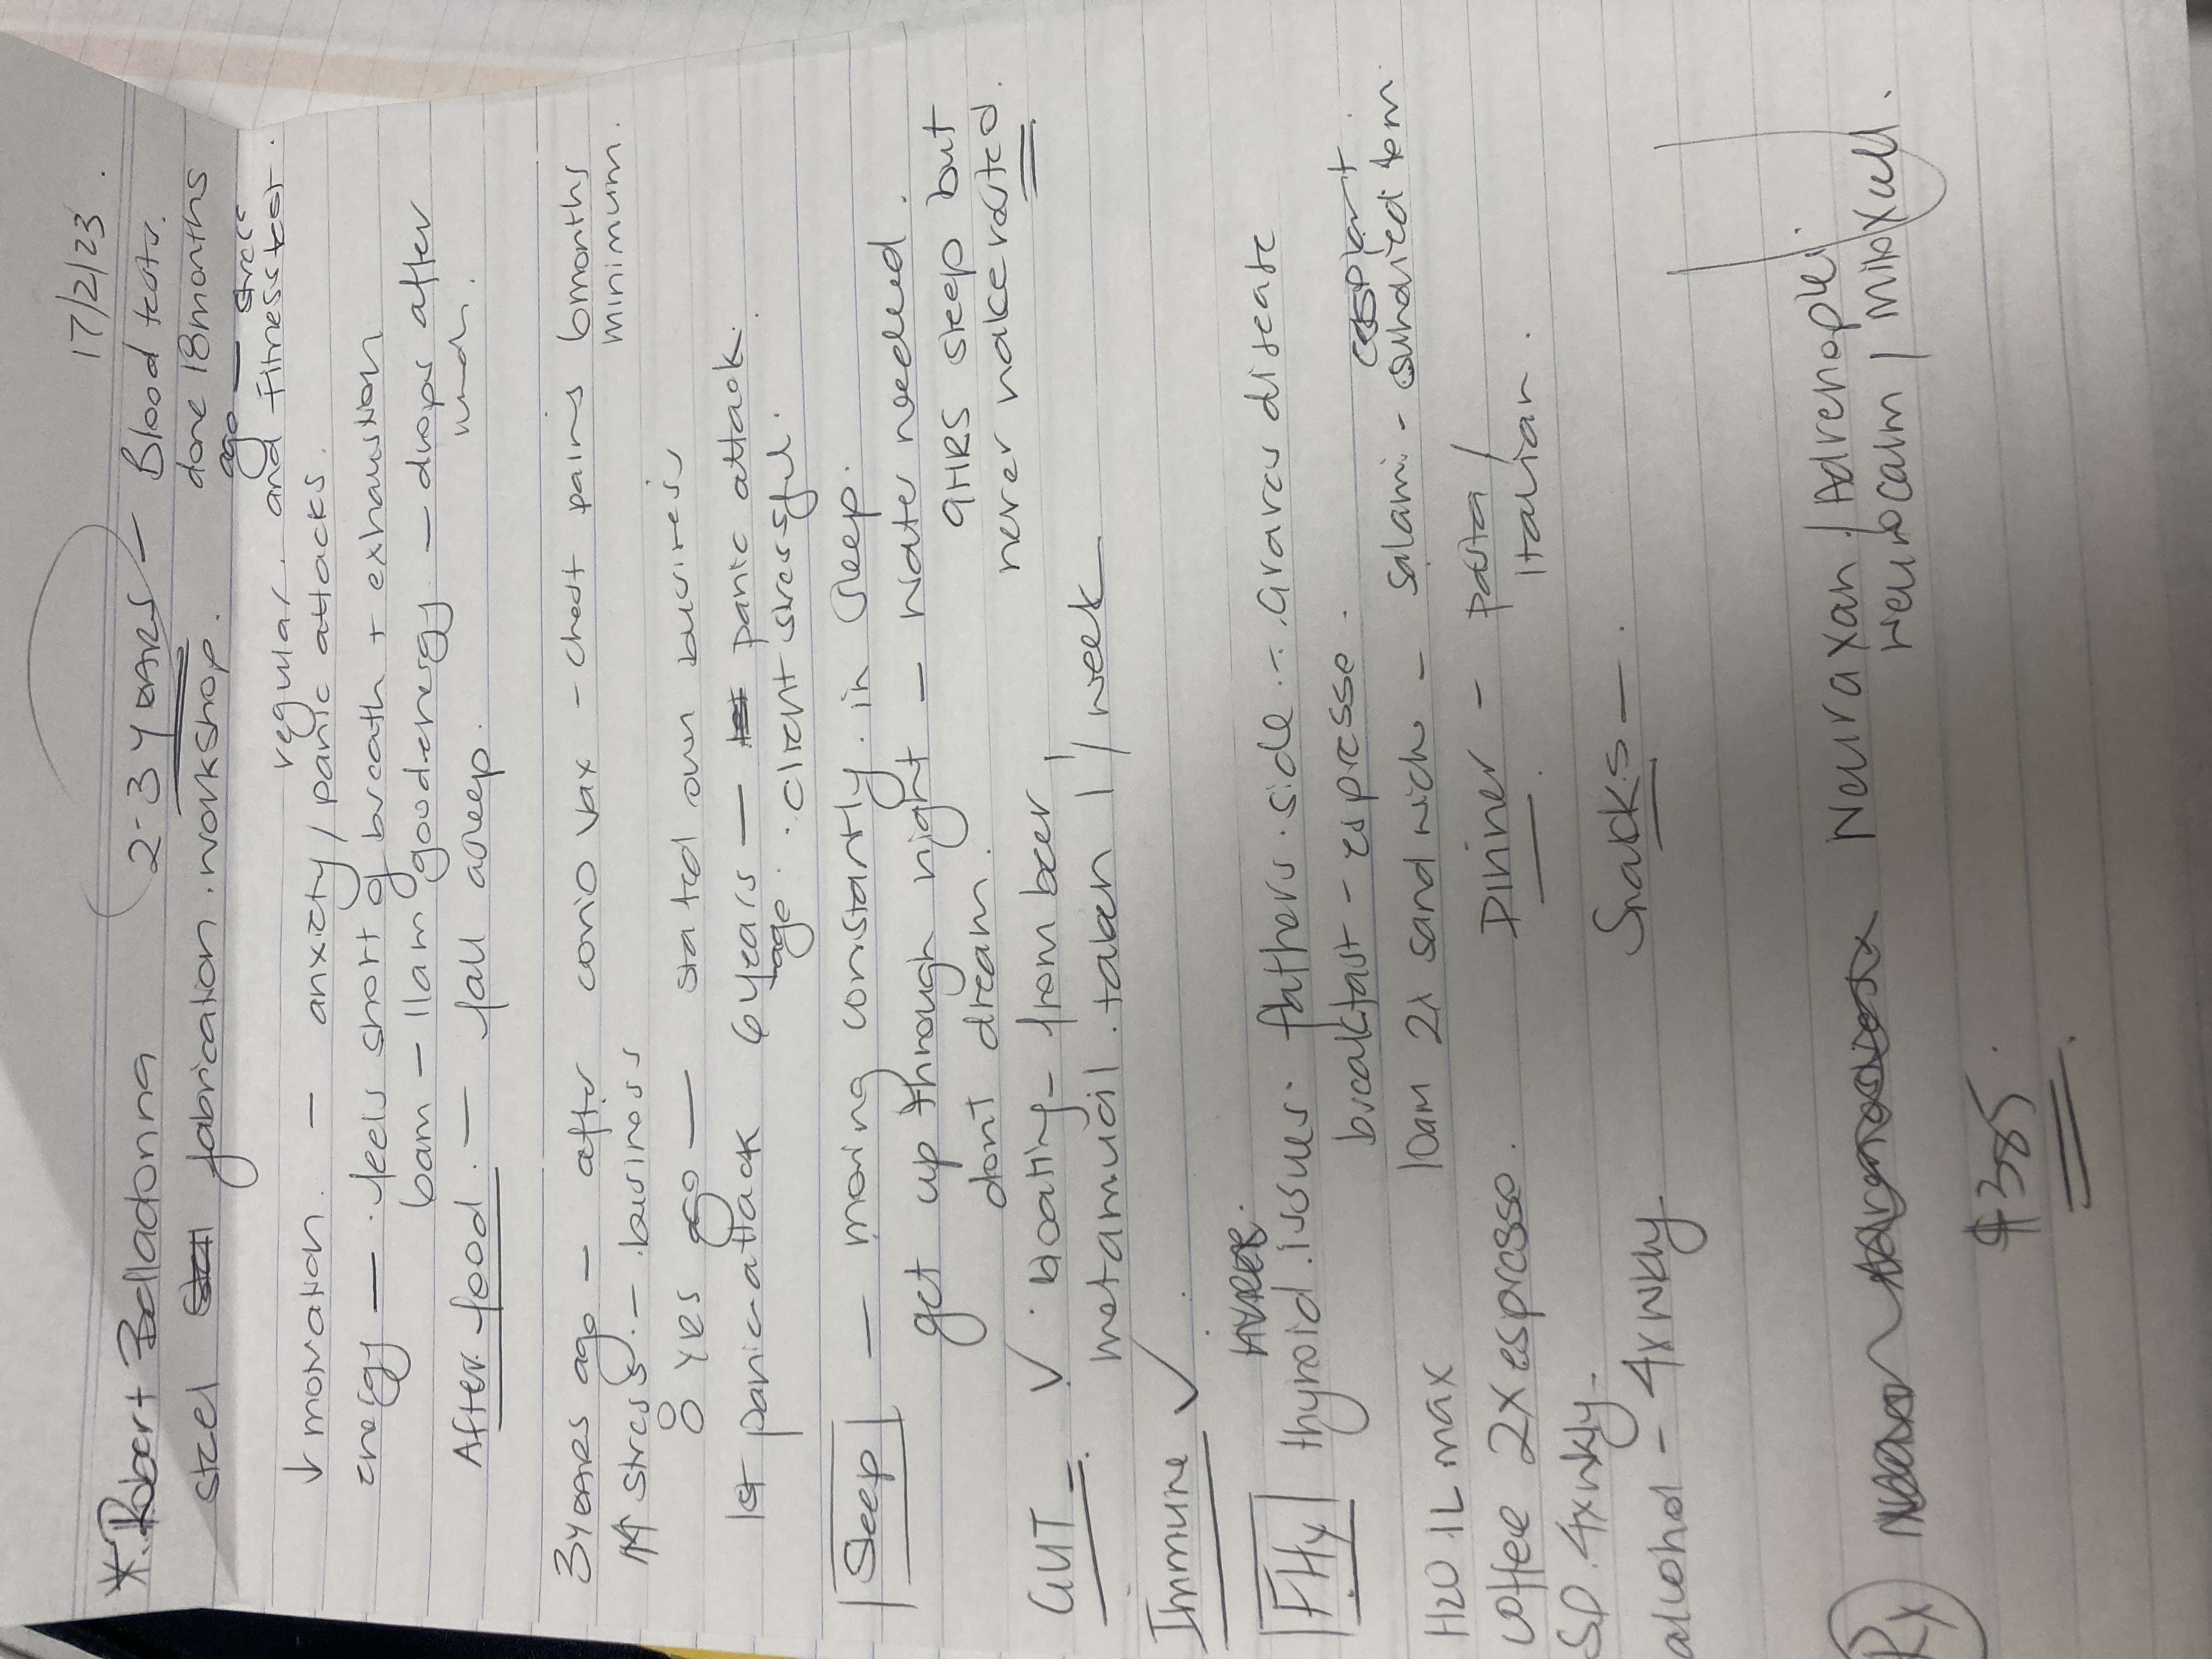 17/2/23.
* Robert Belladonna 2-3 YEARS - Blood tests.
steel fabrication. workshop. done 18months
ago - stress
regular. and fitness test.
↓ motivation. - anxiety / panic attacks.
energy - . feels short of breath + exhaustion
6am - 11am good energy. - drops after
lunch.
After food. - fall asleep.
3 years ago - after covid vax - chest pains 6months
minimum.
↑↑ stress. - business
8 YRS ago - started own business
1st panic attack 6 years - panic attack.
ago. . client stressful.
Sleep - moving constantly. in sleep.
get up through night - water needed.
dont dream. 9HRS sleep but
never wake rested.
GUT ✓ . bloating - from beer
metamucil. taken 1 / week
Immune ✓
FHx thyroid. issues. fathers. side. - . Graves disease
breakfast - espresse.
10am 2x sandwich - salami. - sundried tom
eggplant.
H2O 1L max
Dinner - pasta /
Italian.
coffee 2x espresso.
SD. 4xwkly.
Snacks -
alcohol - 4xwkly
Rx Neuraxan / Adrenoplex.
Neurocalm /
$385.